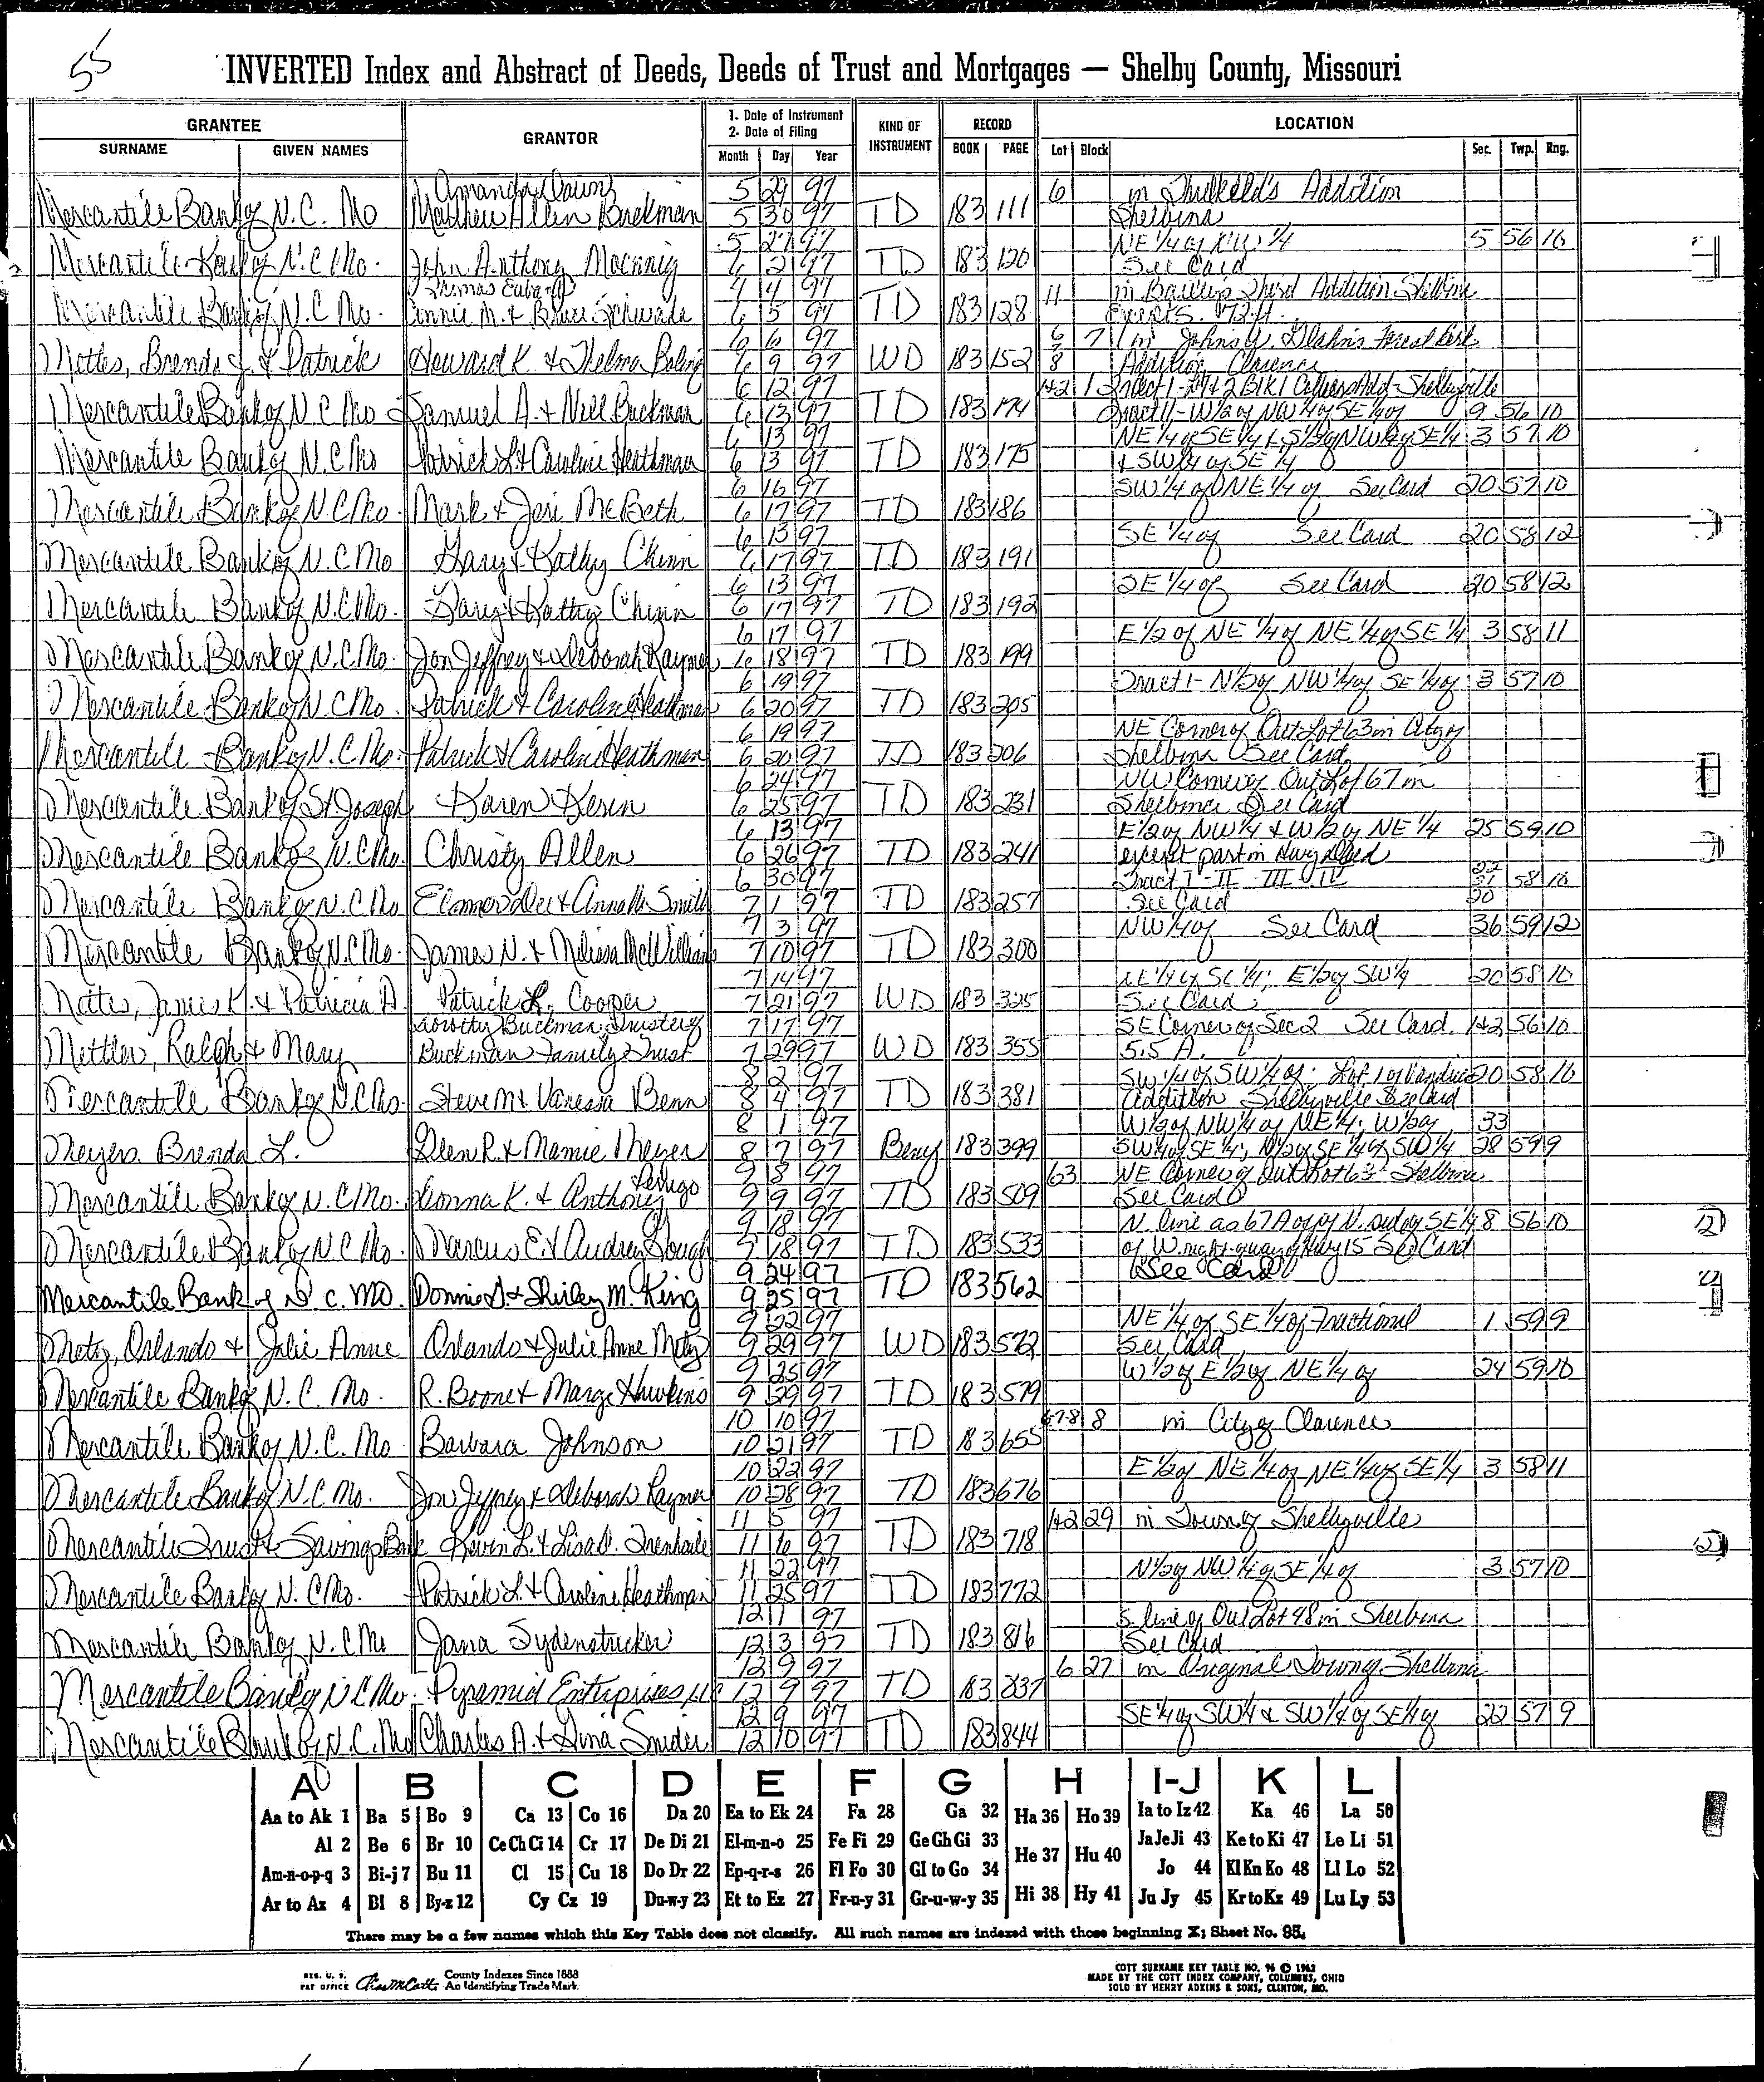 55
INVERTED Index and Abstract of Deeds, Deeds of Trust and Mortgages — Shelby County, Missouri
GRANTEE GRANTOR 1. Date of Instrument 2. Date of Filing KIND OF INSTRUMENT RECORD LOCATION
SURNAME GIVEN NAMES Month Day Year BOOK PAGE Lot Block Sec. Twp. Rng.
Amanda Dawn 5 29 97 6 in Threlkeld's Addition
Mercantile Bank of N.C. Mo Matthew Allen Buckman 5 30 97 TD 183 111 Shelbina
5 27 97 NE 1/4 of NW 1/4 5 56 10
Mercantile Bank of N.C. Mo. John Anthony Moennig 6 2 97 TD 183 120 See Card
Thomas Eubank 4 4 97 11 in Bailey's Third Addition Shelbina
Mercantile Bank of N.C. Mo. Connie M. & Bruce Schwada 6 5 97 TD 183 128 Except S. 72 ft.
6 6 97 6 7 1 in John W. Forest Park
Mettes, Brenda J. & Patrick Howard K. & Thelma Poling 6 9 97 WD 183 152 8 Addition Clarence
6 12 97 1+2 1 Tract 1 - Lot 1+2 Blk 1 Colliers Add - Shelbyville
Mercantile Bank of N.C. Mo Samuel A. & Nell Buckman 6 13 97 TD 183 174 Tract 11 - W 1/2 of NW 1/4 of SE 1/4 of 9 56 10
6 13 97 NE 1/4 of SE 1/4 & S 1/2 of NW 1/4 of SE 1/4 3 57 10
Mercantile Bank of N.C. Mo Patrick L. & Caroline Heathman 6 13 97 TD 183 175 & SW 1/4 of SE 1/4
6 16 97 SW 1/4 of NE 1/4 of See Card 20 57 10
Mercantile Bank of N.C. Mo. Mark & Jeri McBeth 6 17 97 TD 183 186
6 13 97 SE 1/4 of See Card 20 58 12
Mercantile Bank of N.C. Mo Gary & Kathy Chinn 6 17 97 TD 183 191
6 13 97 SE 1/4 of See Card 20 58 12
Mercantile Bank of N.C. Mo. Gary & Kathy Chinn 6 17 97 TD 183 192
6 17 97 E 1/2 of NE 1/4 of NE 1/4 of SE 1/4 3 58 11
Mercantile Bank of N.C. Mo. Jon Jeffrey & Deborah Raymer 6 18 97 TD 183 199
6 19 97 Tract 1 - N 1/2 of NW 1/4 of SE 1/4 of 3 57 10
Mercantile Bank of N.C. Mo. Patrick & Caroline Heathman 6 20 97 TD 183 205
6 19 97 NE Corner of Out Lot 63 in City of
Mercantile Bank of N.C. Mo. Patrick & Caroline Heathman 6 20 97 TD 183 206 Shelbina See Card
6 24 97 NW Corner of Out Lot 67 in
Mercantile Bank of St Joseph Karen Kerin 6 25 97 TD 183 231 Shelbina See Card
6 13 97 E 1/2 of NW 1/4 & W 1/2 of NE 1/4 25 59 10
Mercantile Bank of N.C. Mo. Christy Allen 6 26 97 TD 183 241 except part in Hwy Deed
6 30 97 Tract I - II - III & IV 22 21 58 10
Mercantile Bank of N.C. Mo Elmer Dee & Anna M. Smith 7 1 97 TD 183 257 See Card 20
7 3 97 NW 1/4 of See Card 36 59 12
Mercantile Bank of N.C. Mo. James N. & Melissa McWilliams 7 10 97 TD 183 300
7 14 97 NE 1/4 of SE 1/4; E 1/2 of SW 1/4 20 58 10
Mettes, James H. & Patricia A. Patrick L. Cooper 7 21 97 WD 183 325 See Card
Dorothy Buckman, Trustee of 7 17 97 SE Corner of Sec 2 See Card 1+2 56 10
Mettler, Ralph & Mary Buckman Family Trust 7 29 97 WD 183 355 5.5 A.
8 2 97 SW 1/4 of SW 1/4 of; Lot 1 of 20 58 10
Mercantile Bank of N.C. Mo. Steve M & Vanessa Benn 8 4 97 TD 183 381 Addition Shelbyville See Card
8 1 97 W 1/2 of NW 1/4 of NE 1/4; W 1/2 of 33
Meyers Brenda L. Glen R. & Mamie Meyer 8 7 97 Beny 183 399 SW 1/4 of SE 1/4; N 1/2 of SE 1/4 of SW 1/4 28 59 9
Perugo 9 8 97 63 NE Corner of Out Lot 63 Shelbina
Mercantile Bank of N.C. Mo. Donna K. & Anthony 9 9 97 TD 183 509 See Card
9 18 97 N. line as 67 A of N. side of SE 1/4 8 56 10
Mercantile Bank of N.C. Mo. Marcus E. & Audrey Gough 9 18 97 TD 183 533 of W. right-of-way of Hwy 15 See Card
9 24 97 See Card
Mercantile Bank of N.C. MO. Donnie D. & Shirley M. King 9 25 97 TD 183 562
9 22 97 NE 1/4 of SE 1/4 of Fractional 1 59 9
Metz, Orlando & Julie Anne Orlando & Julie Anne Metz 9 29 97 WD 183 572 See Card
9 25 97 W 1/2 of E 1/2 of NE 1/4 of 24 59 10
Mercantile Bank of N.C. Mo. R. Boone & Marge Hawkins 9 29 97 TD 183 579
10 10 97 6-7-8 8 in City of Clarence
Mercantile Bank of N.C. Mo Barbara Johnson 10 21 97 TD 183 655
10 22 97 E 1/2 of NE 1/4 of NE 1/4 of SE 1/4 3 58 11
Mercantile Bank of N.C. Mo. Jon Jeffrey & Deborah Raymer 10 28 97 TD 183 676
11 5 97 1+2 29 in Town of Shelbyville
Mercantile Trust & Savings Bank Kevin L. & Lisa D. Trenhaile 11 6 97 TD 183 718
11 22 97 N 1/2 of NW 1/4 of SE 1/4 of 3 57 10
Mercantile Bank of N.C. Mo. Patrick L. & Caroline Heathman 11 25 97 TD 183 772
12 1 97 S line of Out Lot 98 in Shelbina
Mercantile Bank of N.C. Mo Jana Sydenstricker 12 3 97 TD 183 816 See Card
12 9 97 6 27 in Original Town of Shelbina
Mercantile Bank of N.C. Mo. Pyramid Enterprises LLC 12 9 97 TD 183 837
12 9 97 SE 1/4 of SW 1/4 & SW 1/4 of SE 1/4 of 22 57 9
Mercantile Bank of N.C. Mo Charles A. & Gina Snider 12 10 97 TD 183 844
A B C D E F G H I-J K L
Aa to Ak 1 Ba 5 Bo 9 Ca 13 Co 16 Da 20 Ea to Ek 24 Fa 28 Ga 32 Ha 36 Ho 39 Ia to Iz 42 Ka 46 La 50
Al 2 Be 6 Br 10 Ce Ch Ci 14 Cr 17 De Di 21 El-m-n-o 25 Fe Fi 29 Ge Gh Gi 33 He 37 Hu 40 Ja Je Ji 43 Ke to Ki 47 Le Li 51
Am-n-o-p-q 3 Bi-j 7 Bu 11 Cl 15 Cu 18 Do Dr 22 Ep-q-r-s 26 Fl Fo 30 Gl to Go 34 Hi 38 Hy 41 Jo 44 Kl Kn Ko 48 Ll Lo 52
Ar to Az 4 Bl 8 By-z 12 Cy Cz 19 Du-w-y 23 Et to Ez 27 Fr-u-y 31 Gr-u-w-y 35 Ju Jy 45 Kr to Kz 49 Lu Ly 53
There may be a few names which this Key Table does not classify. All such names are indexed with those beginning X; Sheet No. 95.
REG. U. S. PAT OFFICE County Indexes Since 1888 An Identifying Trade Mark.
COTT SURNAME KEY TABLE NO. 96 © 1962
MADE BY THE COTT INDEX COMPANY, COLUMBUS, OHIO
SOLD BY HENRY ADKINS & SONS, CLINTON, MO.